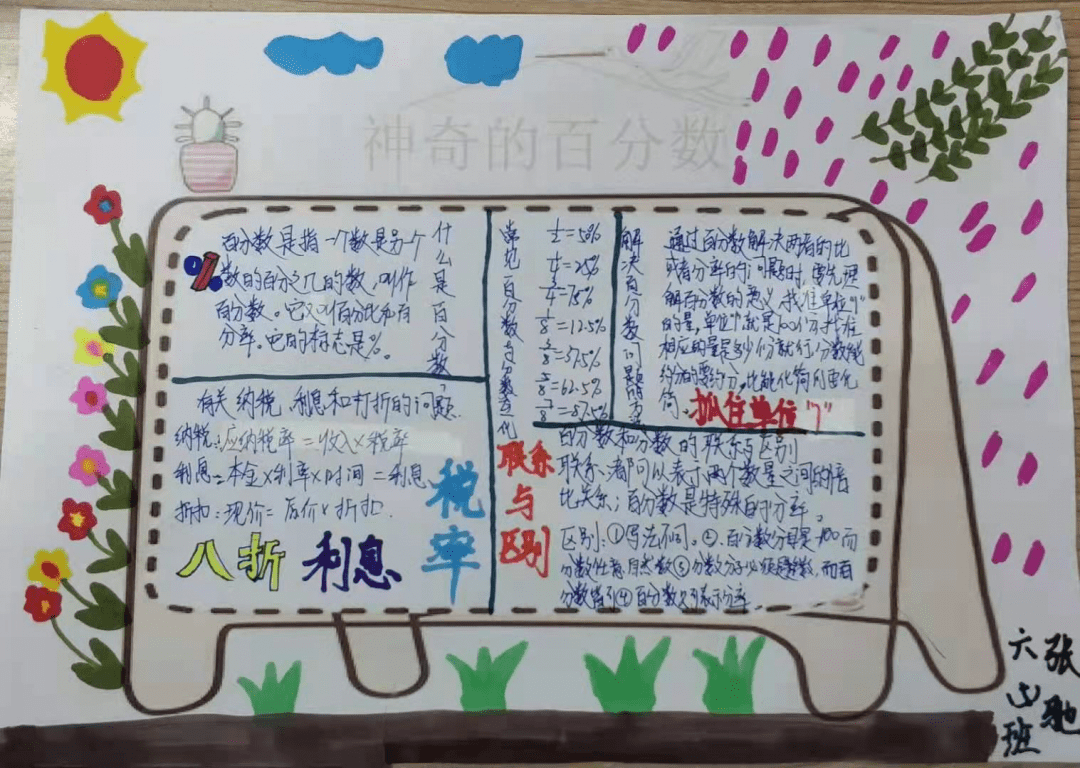 神奇的百分数
什么是百分数
百分数是指一个数是另一个
数的百分之几的数,叫作
百分数。它又叫百分比和百
分率。它的标志是%。
有关纳税、利息和打折的问题
纳税:应纳税率=收入×税率
利息=本金×利率×时间=利息
折扣:现价=原价×折扣
八折
利息
税率
常见百分数与分数互化
1/2=50%
1/4=25%
3/4=75%
1/8=12.5%
3/8=37.5%
5/8=62.5%
7/8=87.5%
解决百分数问题
通过百分数解决两者的比
或者分率的问题时,要先理
解百分数的意义,找准单位"1"
的量,单位"1"就是100份,找准
相应的量是多少份就行,分数能
约分的要约分,比能化简的要化
简。
抓住单位"1"
联系与区别
百分数和分数的联系与区别
联系:都可以表示两个数量之间的倍
比关系;百分数是特殊的分率。
区别:①写法不同。②百分数分母是100而
分数任意自然数③分数分子必须是整数,而百
分数皆可④百分数只表示分率。
张驰
六
班